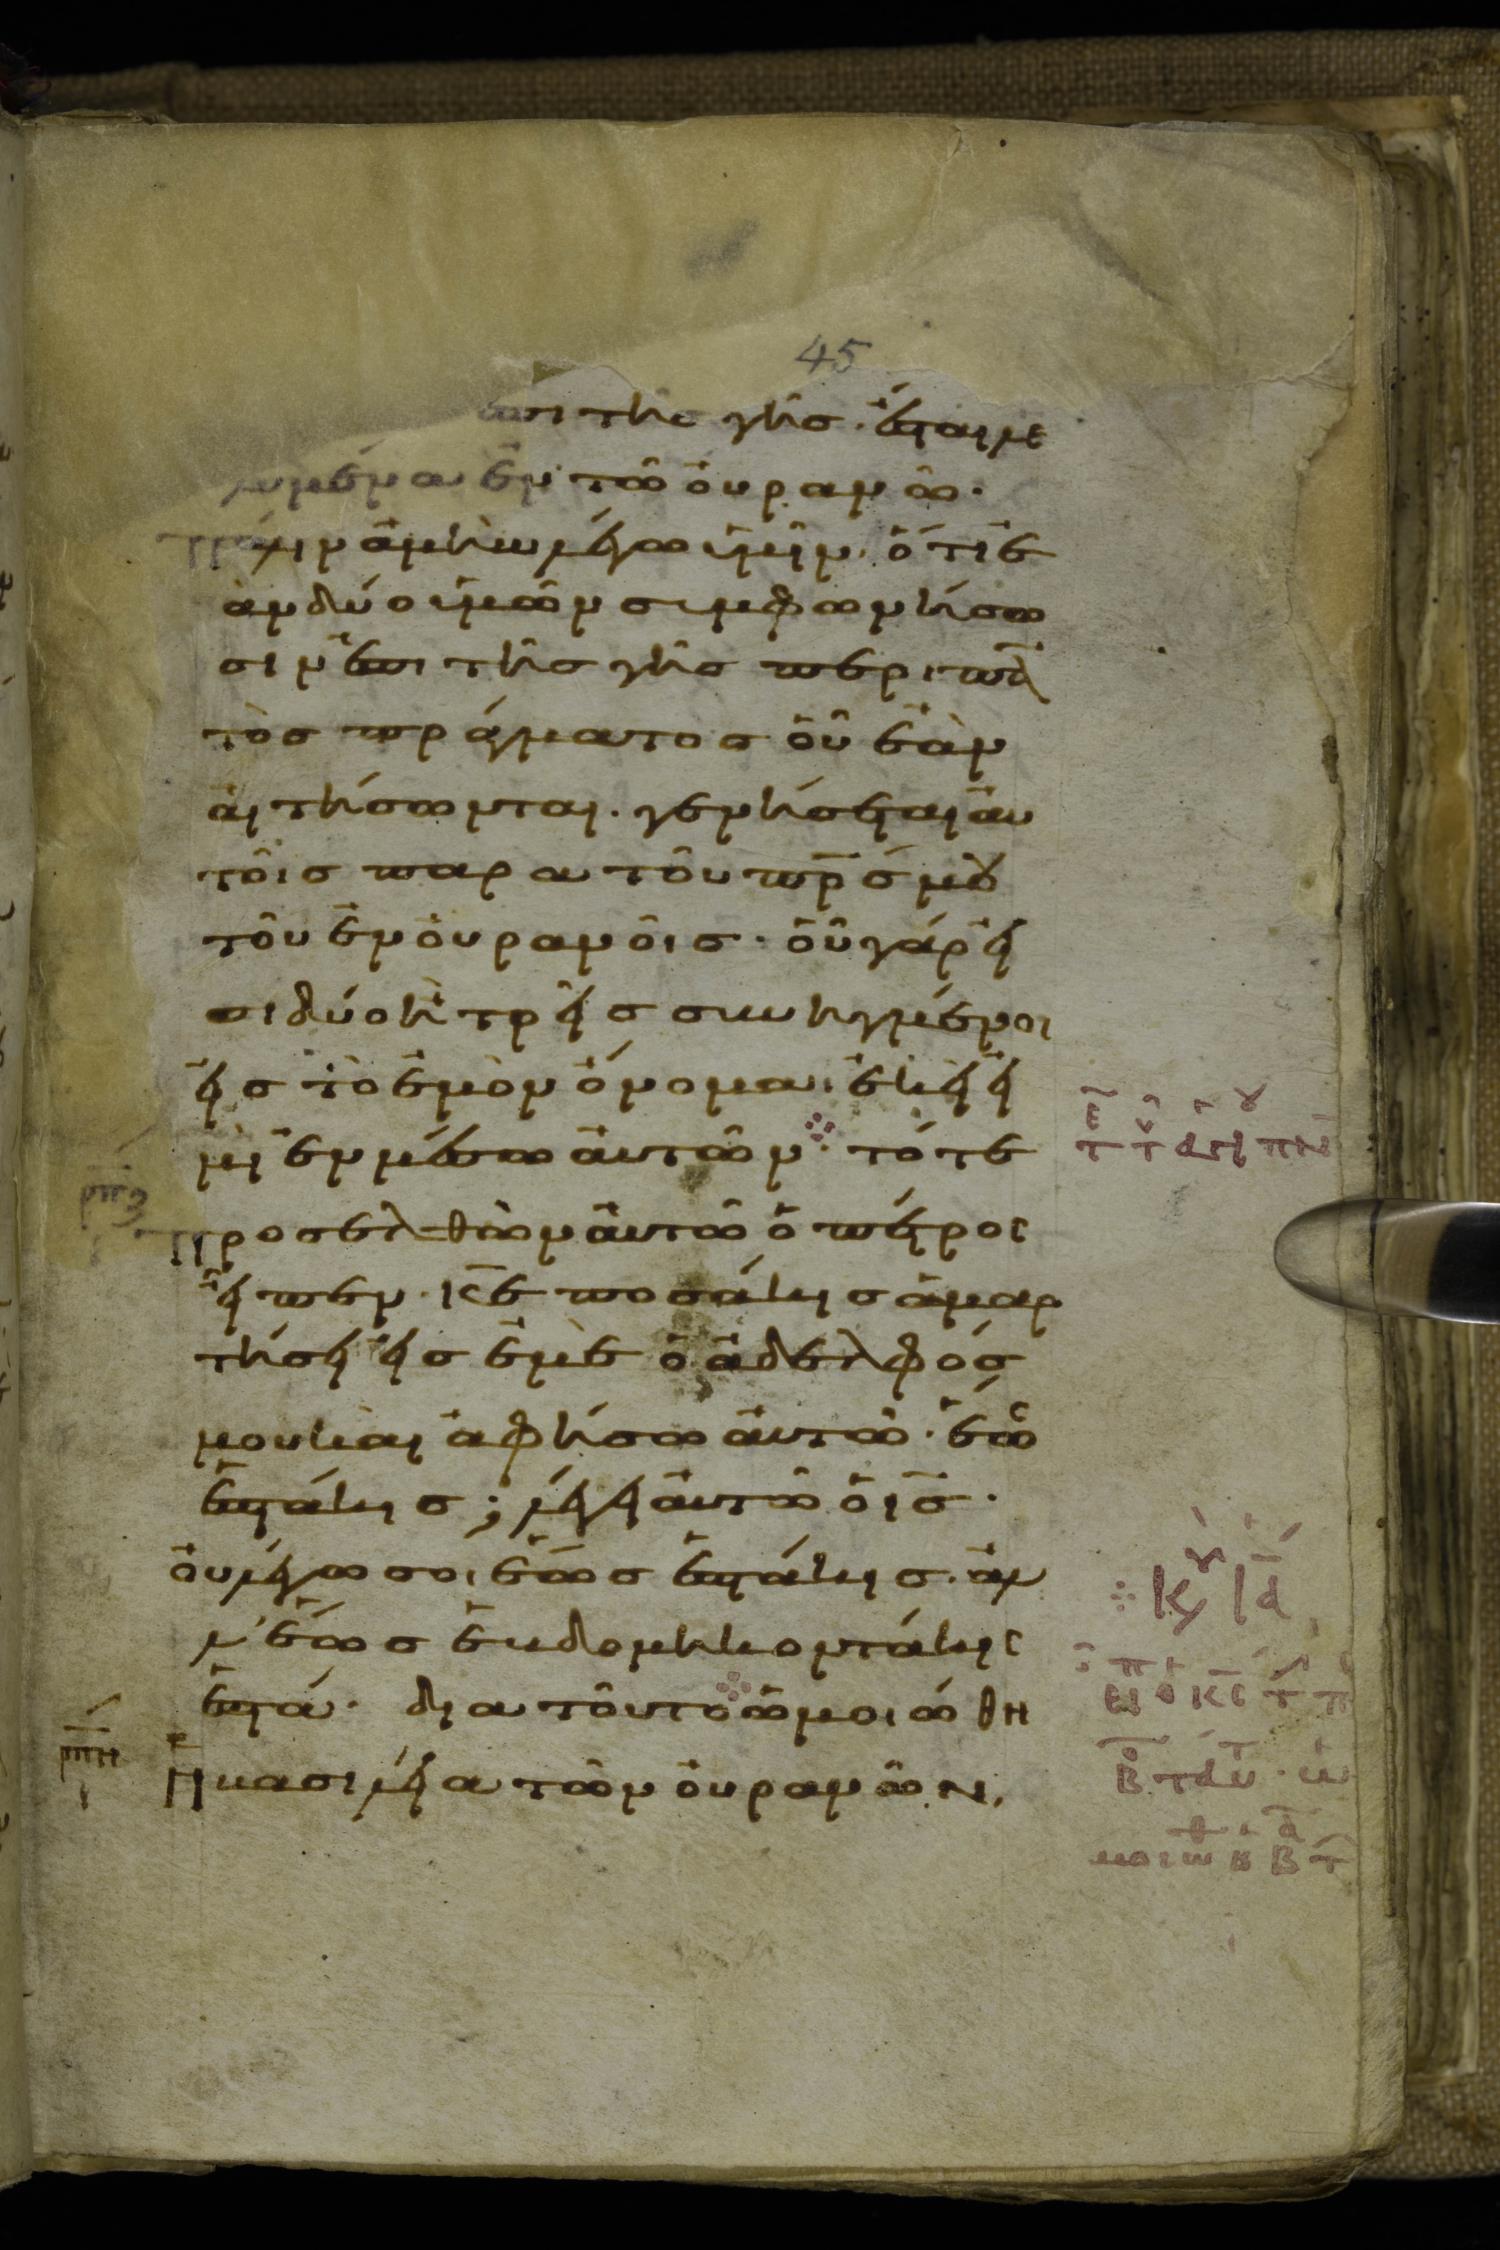 45
ἐπι τῆς γῆς· ἔσται λε
λυμένα ἐν τῶ οὐρανῶ·
πάλιν ἀμὴν λέγω ὑμῖν· ὅτι ἐ
ὰν δύο ὑμῶν συμφωνήσω
σιν ἐπι τῆς γῆς περι παν
τὸς πράγματος οὗ ἐὰν
αἰτήσωνται· γενήσεται αὐ
τοῖς παρα τοῦ πρς μου
τοῦ ἐν οὐρανοῖς· οὗ γάρ εἰ
σι δύο ἢ τρεῖς συνηγμένοι
εἰς τὸ ἐμὸν ὄνομα· ἐκεῖ εἰ
μὶ ἐν μέσω αὐτῶν· τότε
προσελθὼν αὐτῶ ὁ πέτρος
εἶπεν· κε ποσάκις ἁμαρ
τήσει εἰς ἐμὲ ὁ ἀδελφός
μου καὶ ἀφήσω αὐτῶ· ἕως
ἑπτάκις; λέγει αὐτῶ ὁ ις·
οὐ λέγω σοι ἕως ἑπτάκις· ἀλ
λ' ἕως ἑβδομηκοντάκις
ἑπτά· δια τοῦτο ὡμοιώθη
ἡ βασιλεία τῶν οὐρανῶν,
Κυ ΙΑ